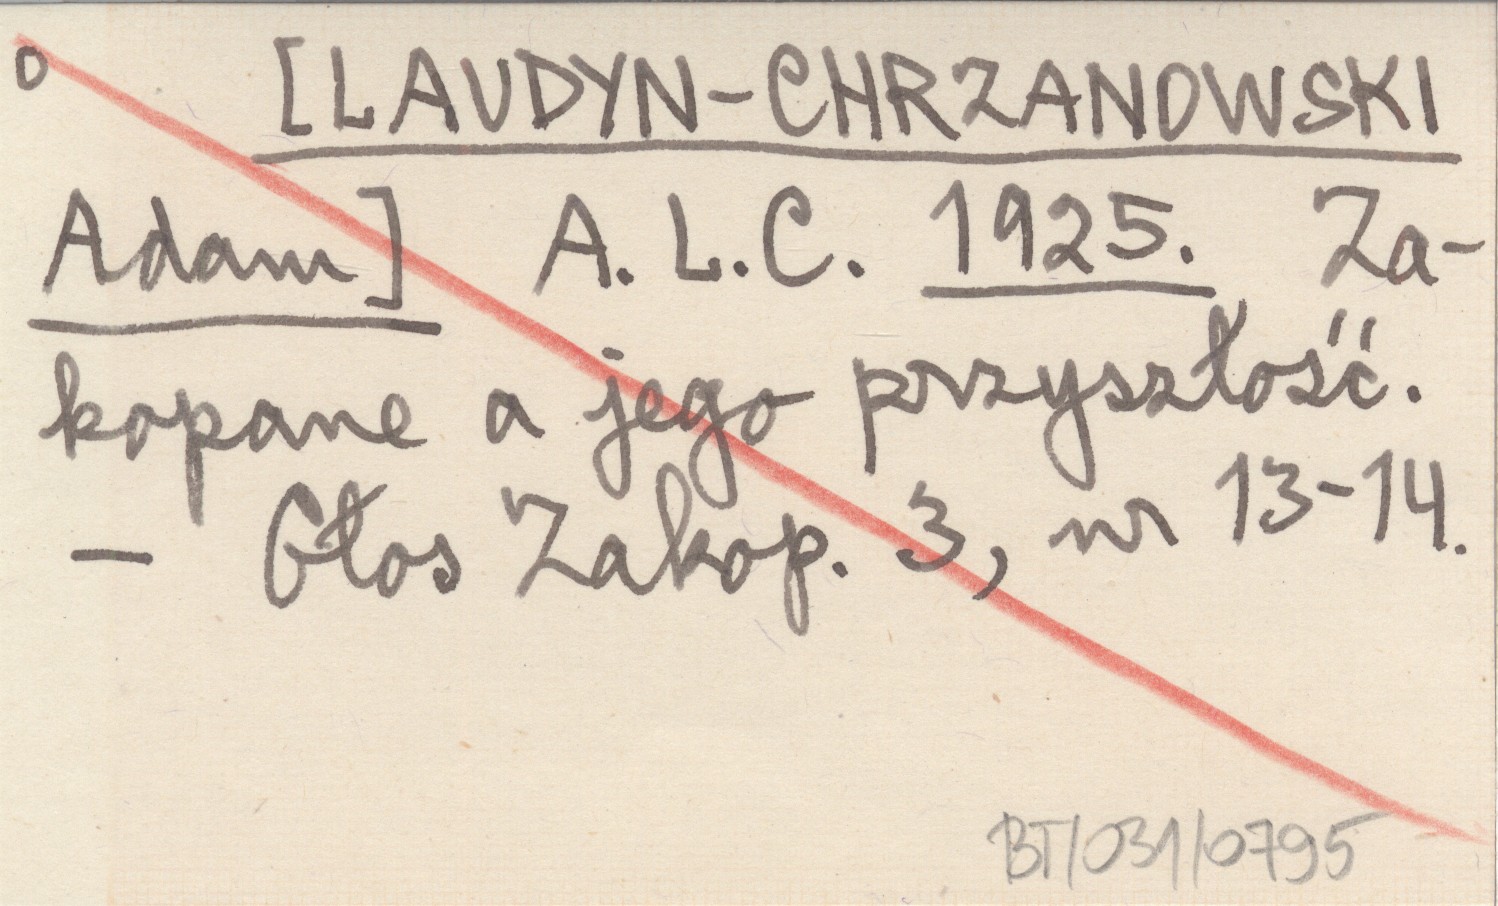 o [LAUDYN-CHRZANOWSKI
Adam] A. L. C. 1925. Za-
kopane a jego przyszłość.
— Głos Zakop. 3, nr 13-14.
BT/031/0795